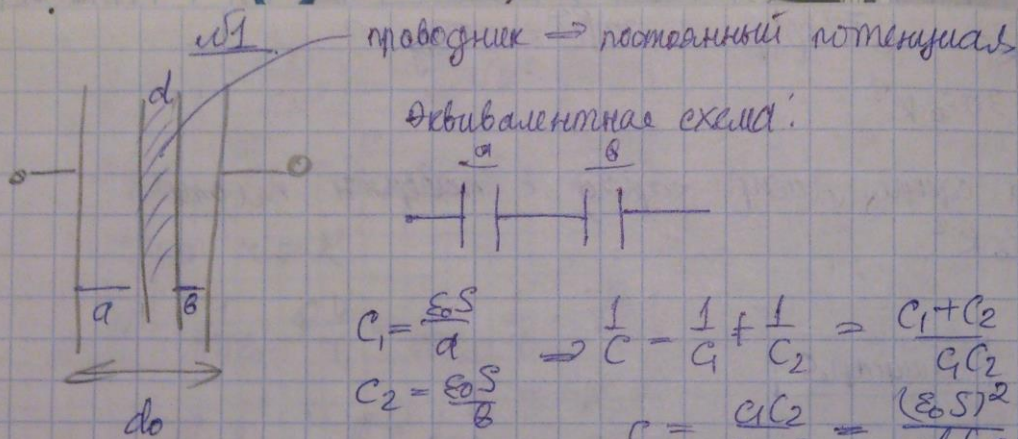 №1 проводник => постоянный потенциал
d
Эквивалентная схема:
a в
a в
C₁ = ε₀S/a => 1/C = 1/C₁ + 1/C₂ = (C₁+C₂)/(C₁C₂)
C₂ = ε₀S/в
d₀
C = C₁C₂ = (ε₀S)²